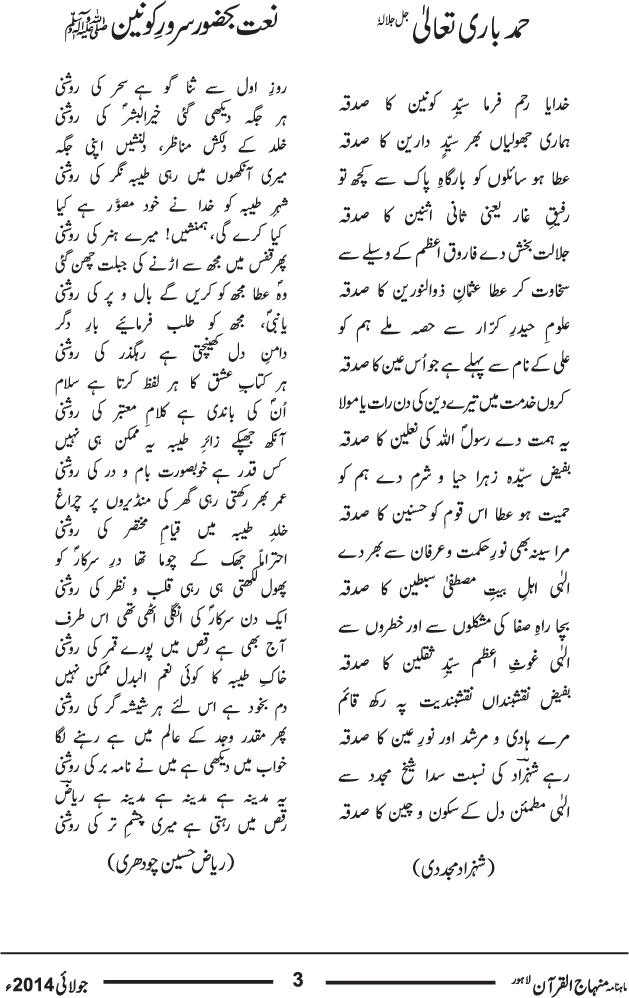 حمد باری تعالیٰ جل جلالہٗ
خدایا رحم فرما سیّدِ کونین کا صدقہ
ہماری جھولیاں بھر سیّدِ دارین کا صدقہ
عطا ہو سائلوں کو بارگاہِ پاک سے کچھ تو
رفیقِ غار یعنی ثانی اثنین کا صدقہ
جلالت بخش دے فاروقِ اعظم کے وسیلے سے
سخاوت کر عطا عثمانِ ذوالنورین کا صدقہ
علومِ حیدرِ کرّار سے حصہ ملے ہم کو
علی کے نام سے پہلے ہے جو اُس عین کا صدقہ
کروں خدمت میں تیرے دین کی دن رات یا مولا
یہ ہمت دے رسولؐ اللہ کی نعلین کا صدقہ
بفیضِ سیّدہ زہرا حیا و شرم دے ہم کو
حمیت ہو عطا اس قوم کو حسنین کا صدقہ
مرا سینہ بھی نورِ حکمت و عرفان سے بھر دے
الٰہی اہلِ بیتِ مصطفیٰ سبطین کا صدقہ
بچا راہِ صفا کی مشکلوں سے اور خطروں سے
الٰہی غوثِ اعظم سیّدِ ثقلین کا صدقہ
بفیضِ نقشبنداں نقشبندیت پہ رکھ قائم
مرے ہادی و مرشد اور نورِ عین کا صدقہ
رہے شہزادؔ کی نسبت سدا شیخ مجدد سے
الٰہی مطمئن دل کے سکون و چین کا صدقہ
(شہزاد مجددی)
نعت بحضور سرورِ کونین ﷺ
روزِ اول سے ثنا گو ہے سحر کی روشنی
ہر جگہ دیکھی گئی خیرالبشرؐ کی روشنی
خلد کے دلکش مناظر، دلنشیں اپنی جگہ
میری آنکھوں میں رہی طیبہ نگر کی روشنی
شہرِ طیبہ کو خدا نے خود مصوّر ہے کیا
کیا کرے گی، ہمنشیں! میرے ہنر کی روشنی
پھر قفس میں مجھ سے اڑنے کی جبلت چھن گئی
وہؐ عطا مجھ کو کریں گے بال و پر کی روشنی
یانبیؐ، مجھ کو طلب فرمائیے بارِ دگر
دامنِ دل کھینچتی ہے رہگذر کی روشنی
ہر کتابِ عشق کا ہر لفظ کرتا ہے سلام
اُنؐ کی باندی ہے کلامِ معتبر کی روشنی
آنکھ جھپکے زائرِ طیبہ یہ ممکن ہی نہیں
کس قدر ہے خوبصورت بام و در کی روشنی
عمر بھر رکھتی رہی گھر کی منڈیروں پر چراغ
خلدِ طیبہ میں قیامِ مختصر کی روشنی
احتراماً جھک کے چوما تھا درِ سرکارؐ کو
پھول لکھتی ہی رہی قلب و نظر کی روشنی
ایک دن سرکارؐ کی انگلی اٹھی تھی اس طرف
آج بھی ہے رقص میں پورے قمر کی روشنی
خاکِ طیبہ کا کوئی نعم البدل ممکن نہیں
دم بخود ہے اس لئے ہر شیشہ گر کی روشنی
پھر مقدر وجد کے عالم میں ہے رہنے لگا
خواب میں دیکھی ہے میں نے نامہ بر کی روشنی
یہ مدینہ ہے مدینہ ہے مدینہ ہے ریاضؔ
رقص میں رہتی ہے میری چشمِ تر کی روشنی
(ریاض حسین چودھری)
ماہنامہ منہاج القرآن لاہور 3 جولائی 2014ء